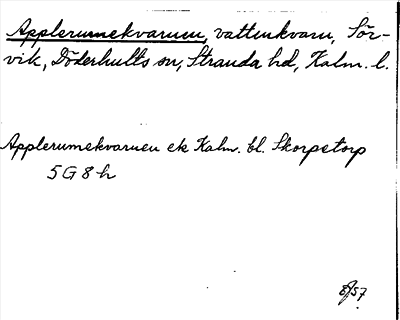 Applerumekvarnen, vattenkvarn, Sör-
vik, Döderhults sn, Stranda hd, Kalm. l.
Applerumekvarnen ek Kalm. bl. Skorpetorp
5 G 8 h